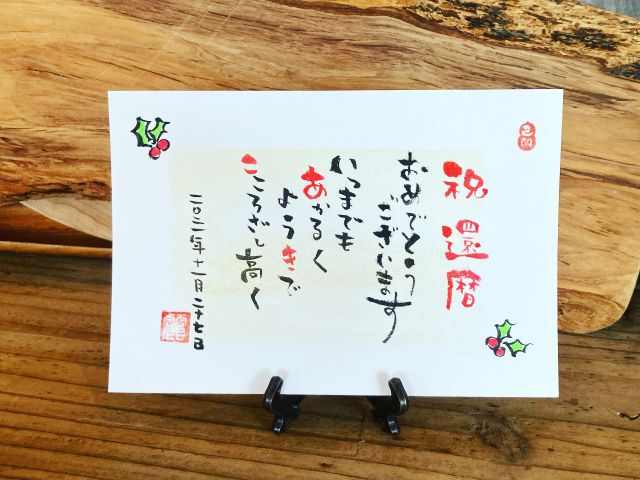 祝還暦
おめでとう
ございます
いつまでも
あかるく
ようきで
こころざし高く
二〇二一年十一月二十七日